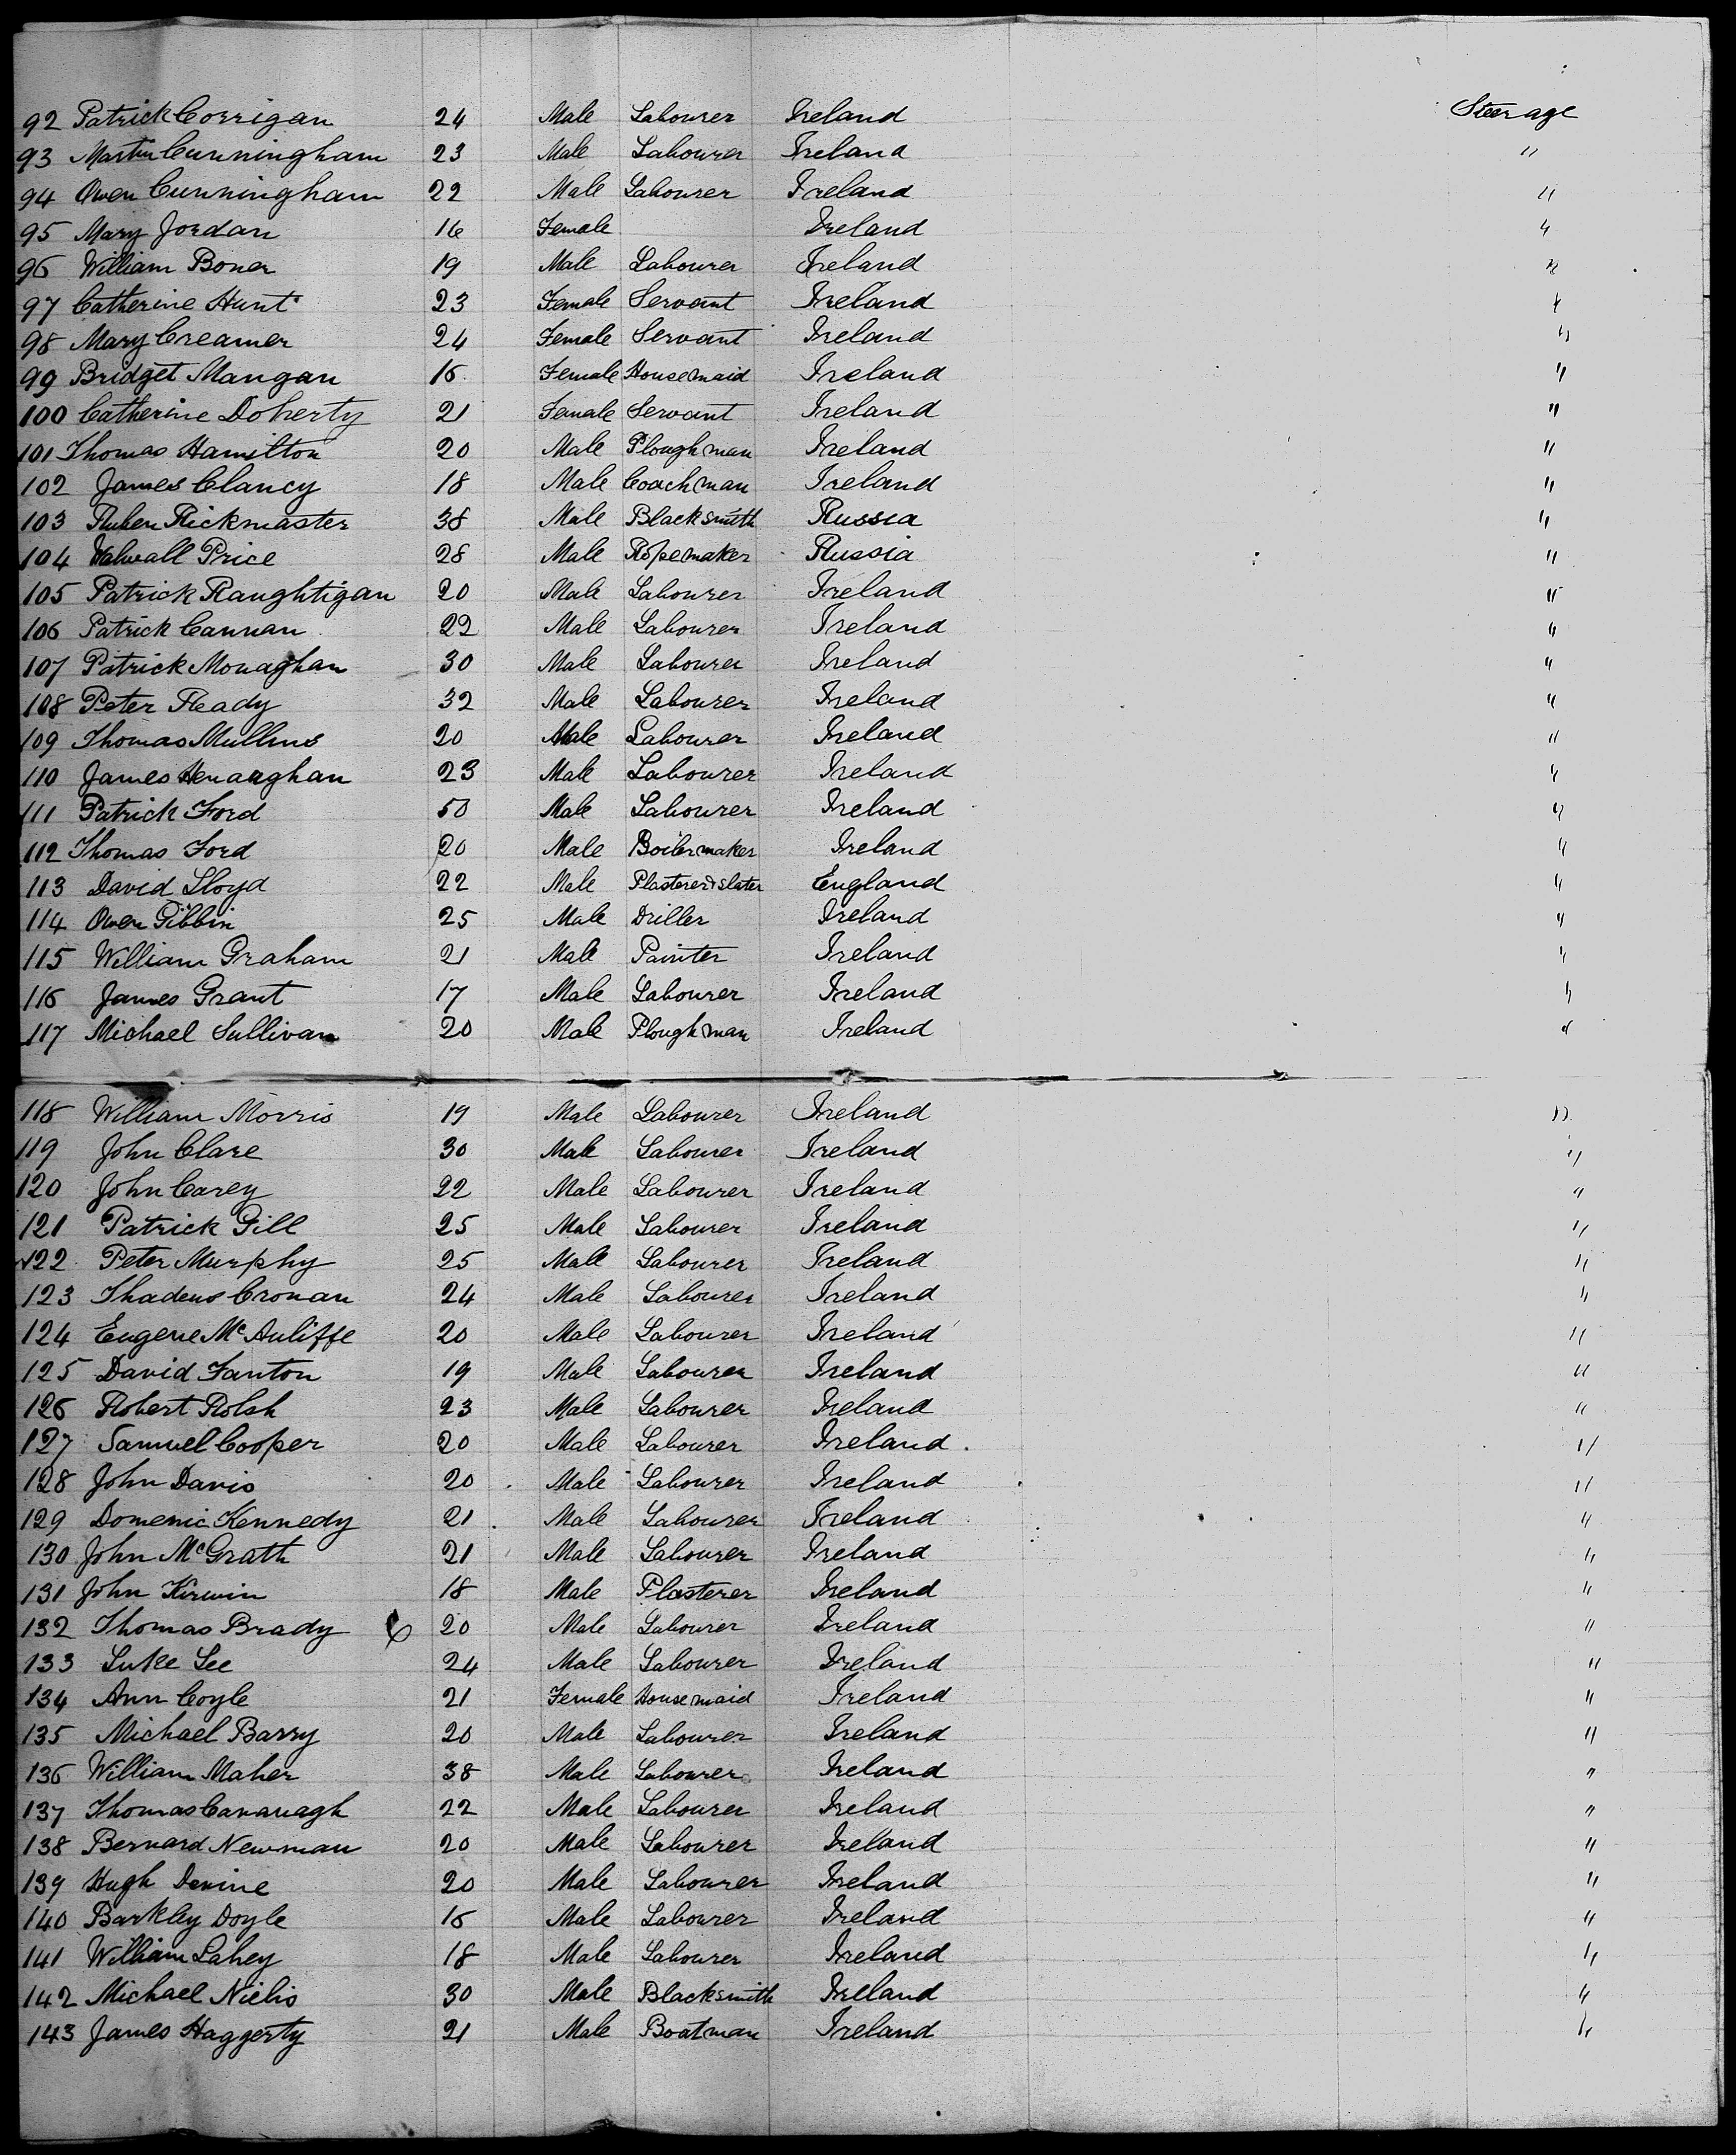 92 Patrick Corrigan 24 Male Labourer Ireland Steerage
93 Martin Cunningham 23 Male Labourer Ireland "
94 Owen Cunningham 22 Male Labourer Ireland "
95 Mary Jordan 16 Female Ireland "
96 William Boner 19 Male Labourer Ireland "
97 Catherine Hunt 23 Female Servant Ireland "
98 Mary Creamer 24 Female Servant Ireland "
99 Bridget Mangan 16 Female Housemaid Ireland "
100 Catherine Doherty 21 Female Servant Ireland "
101 Thomas Hamilton 20 Male Ploughman Ireland "
102 James Clancy 18 Male Coachman Ireland "
103 Ruben Rickmaster 38 Male Blacksmith Russia "
104 Price 28 Male Ropemaker Russia "
105 Patrick Raughtigan 20 Male Labourer Ireland "
106 Patrick Cannan 22 Male Labourer Ireland "
107 Patrick Monaghan 30 Male Labourer Ireland "
108 Peter 32 Male Labourer Ireland "
109 Thomas Mullins 20 Male Labourer Ireland "
110 James Henaaghan 23 Male Labourer Ireland "
111 Patrick Ford 50 Male Labourer Ireland "
112 Thomas Ford 20 Male Boilermaker Ireland "
113 David Lloyd 22 Male Plasterer & slater England "
114 Owen Gibbin 25 Male Driller Ireland "
115 William Graham 21 Male Painter Ireland "
116 James Grant 17 Male Labourer Ireland "
117 Michael Sullivan 20 Male Ploughman Ireland "
118 William Morris 19 Male Labourer Ireland "
119 John Clare 30 Male Labourer Ireland "
120 John Carey 22 Male Labourer Ireland "
121 Patrick Gill 25 Male Labourer Ireland "
122 Peter Murphy 25 Male Labourer Ireland "
123 Thadeus Cronan 24 Male Labourer Ireland "
124 Eugene McAuliffe 20 Male Labourer Ireland "
125 David Fanton 19 Male Labourer Ireland "
126 Robert 23 Male Labourer Ireland "
127 Samuel Cooper 20 Male Labourer Ireland "
128 John Davis 20 Male Labourer Ireland "
129 Domenic Kennedy 21 Male Labourer Ireland "
130 John McGrath 21 Male Labourer Ireland "
131 John Kirwin 18 Male Plasterer Ireland "
132 Thomas Brady 20 Male Labourer Ireland "
133 Luke Lee 24 Male Labourer Ireland "
134 Ann Coyle 21 Female Housemaid Ireland "
135 Michael Barry 20 Male Labourer Ireland "
136 William Maher 38 Male Labourer Ireland "
137 Thomas Cavanagh 22 Male Labourer Ireland "
138 Bernard Newman 20 Male Labourer Ireland "
139 Hugh Devine 20 Male Labourer Ireland "
140 Barkley Doyle 16 Male Labourer Ireland "
141 William Lahey 18 Male Labourer Ireland "
142 Michael Nielis 30 Male Blacksmith Ireland "
143 James Haggerty 21 Male Boatman Ireland "